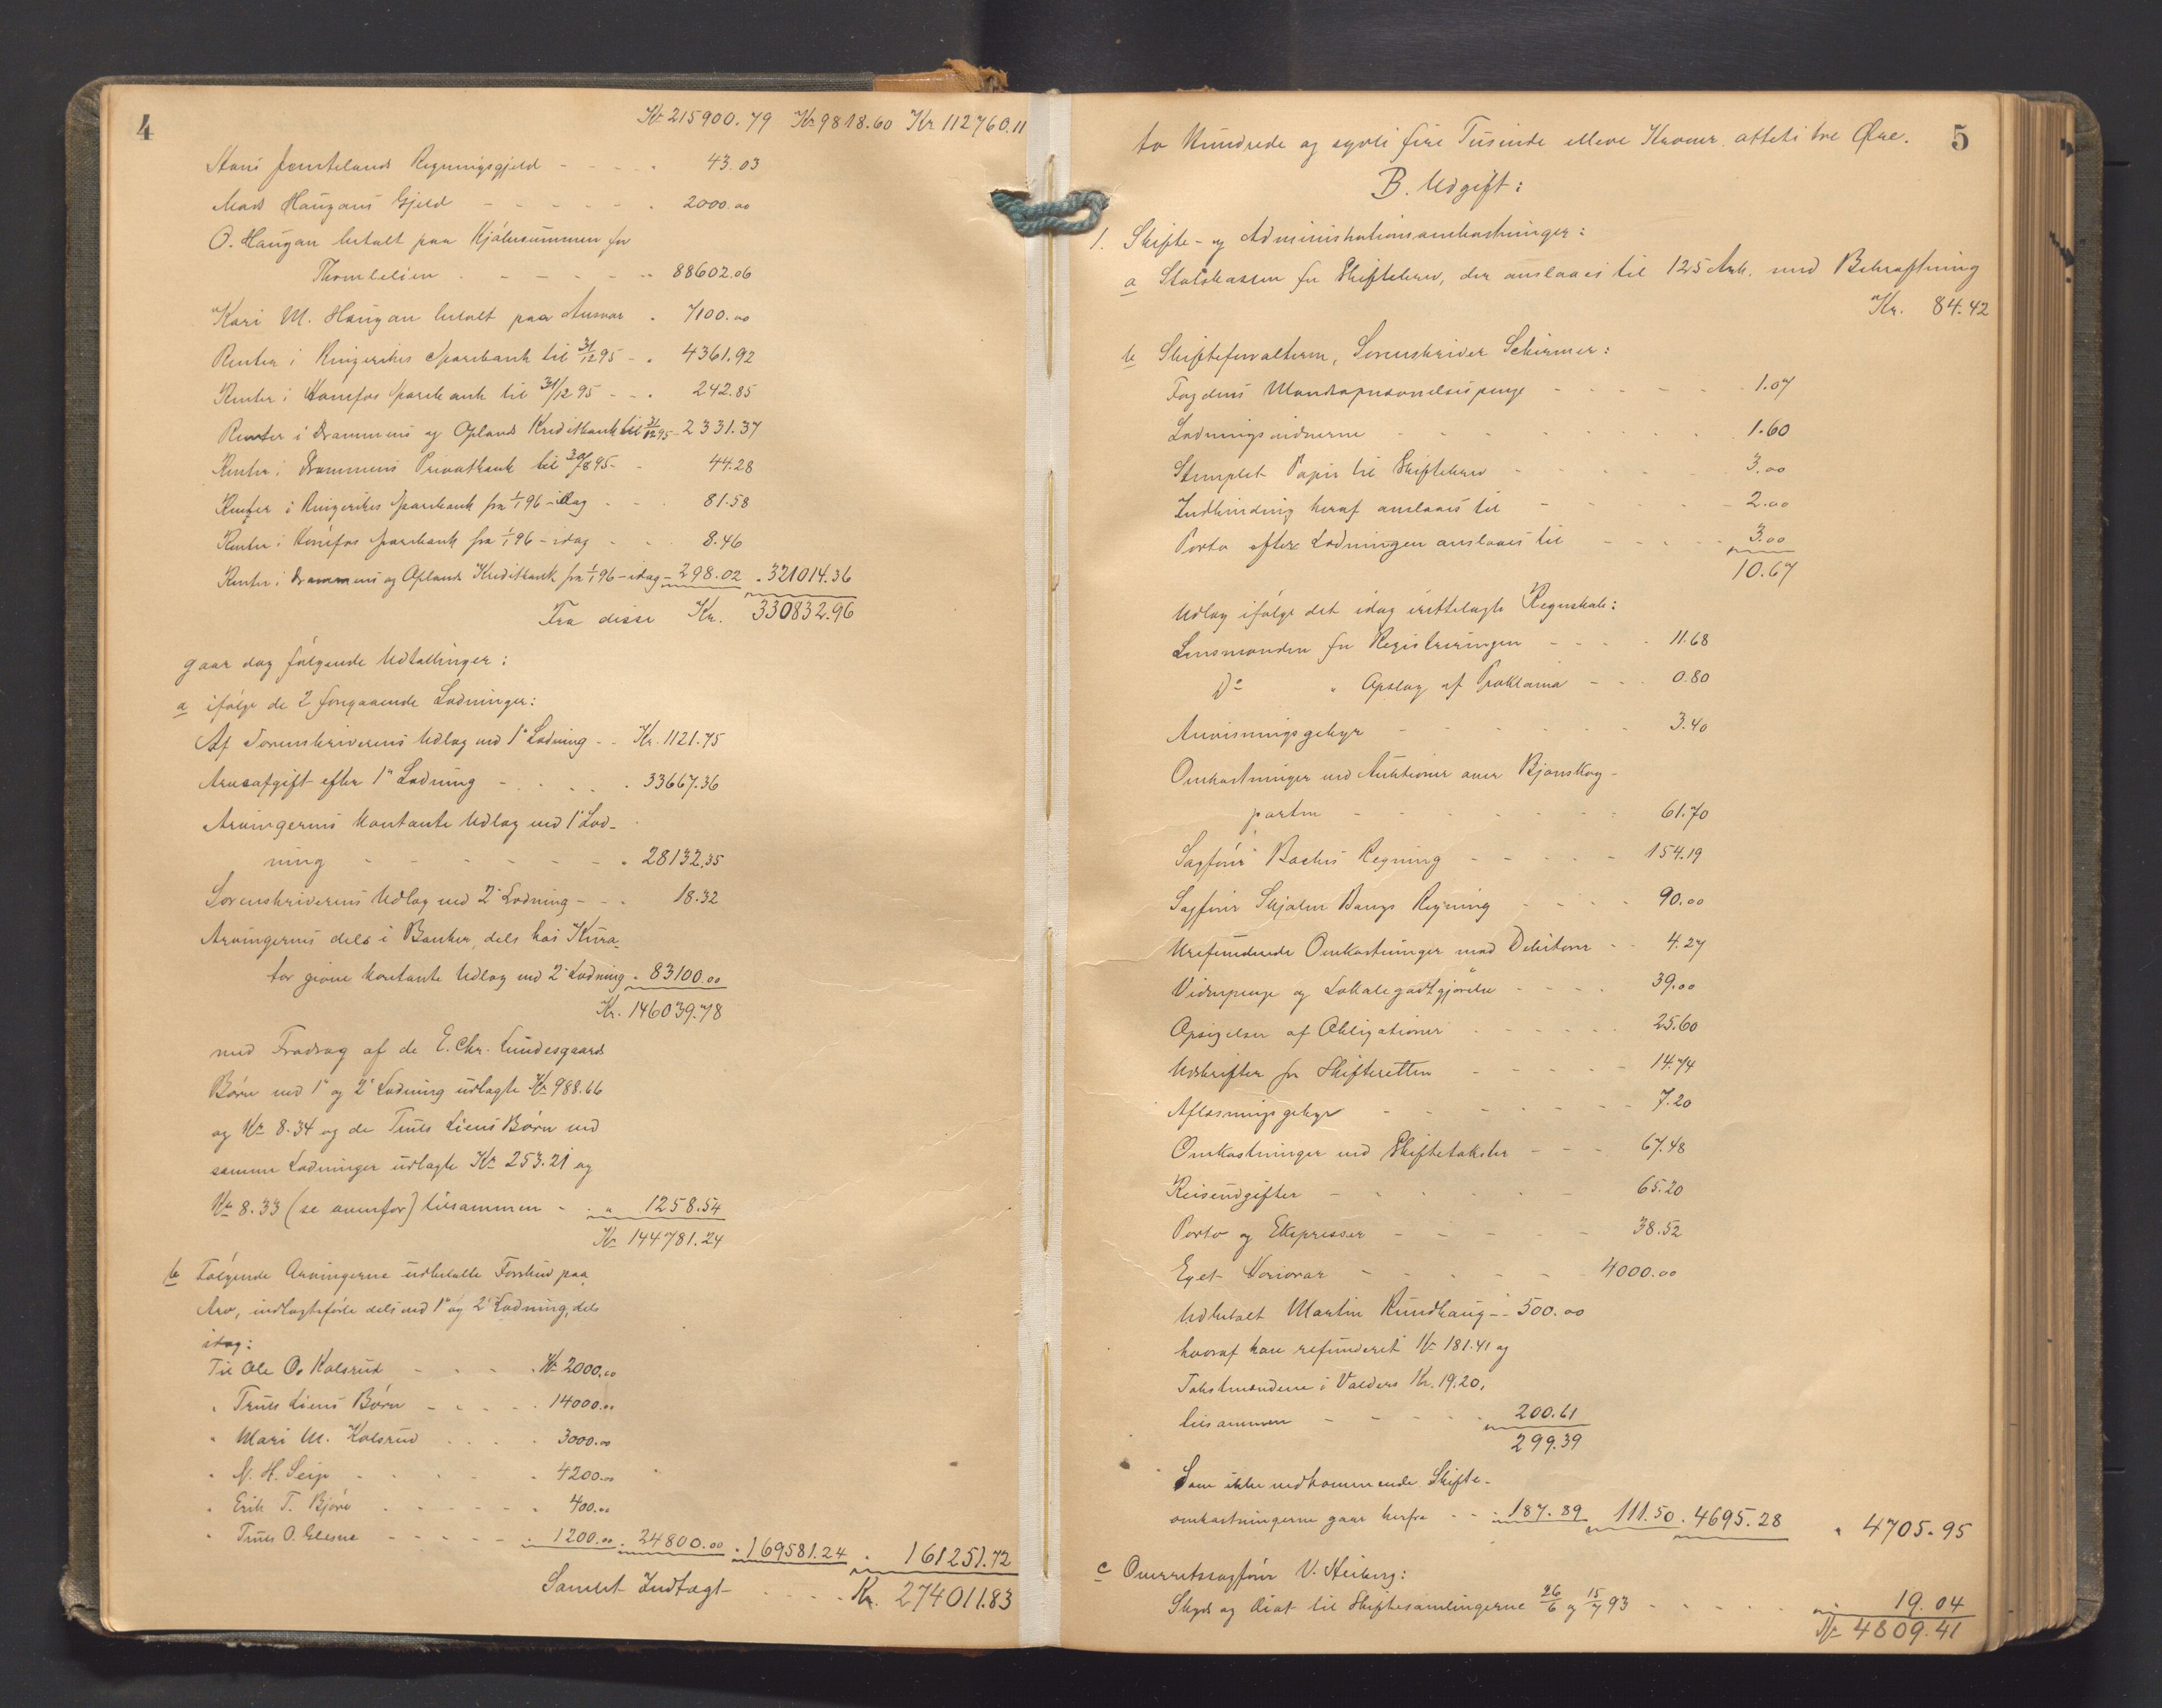 4
Kr 215900.79 Kr 9818.60 Kr 112760.11
Hans Jemtelands Regningsgjæld - - - - 43.03
Mads Haugans Gjæld - - - - - 2000.00
O. Haugan betalt paa Kjøbesummen for
Thomlelien - - - - - 88602.06
Kari M. Haugan betalt paa Ansvar - 7100.00
Renter i Ringerikes Sparebank til 31/12 95 - - 4361.92
Renter i Hønefos Sparebank til 31/12 95 - - - 242.85
Renter i Drammens og Oplands Kreditbank til 31/12 95 - 2331.37
Renter i Drammens Privatbank til 30/8 95 - - 44.28
Renter i Ringerikes Sparebank fra 1/1 96 - idag - - 81.58
Renter i Hønefos Sparebank fra 1/1 96 - idag - - 8.46
Renter i Drammens og Oplands Kreditbank fra 1/1 96 - idag - 298.02 - 321014.36
Fra disse Kr. 330832.96
gaar dog følgende Udtællinger:
a ifølge de 2 foregaaende Lodninger:
Af Sorenskriverens Udlæg ved 1ste Lodning - - Kr. 1121.75
Arveafgift efter 1ste Lodning - - - - 33667.36
Arvingernes kontante Udlæg ved 1ste Lod-
ning - - - - - - 28132.35
Sorenskriverens Udlæg ved 2den Lodning - - - 18.32
Arvingernes dels i Banker, dels hos Kura-
tor givne kontante Udlæg ved 2den Lodning - 83100.00
Kr. 146039.78
med Fradrag af de E. Chr. Lundesgaards
Børn ved 1ste og 2den Lodning udlagte Kr 988.66
og Kr 8.34 og de Truls Liens Børn ved
samme Lodninger udlagte Kr 253.21 og
Kr 8.33 (se ovenfor) tilsammen - - " 1258.54
Kr 144781.24
b Følgende Arvingerne udbetalte Forskud paa
Arv, indtægtsførte dels ved 1ste og 2den Lodning, dels
idag:
Til Ole O. Kolsrud - - - - Kr 2000.00
" Truls Liens Børn - - - - - 14000.00
" Mari M. Kolsrud - - - - 3000.00
" N. H. Seip - - - - - 4200.00
" Erik T. Bjøre - - - - - 400.00
" Truls O. - - - - - 1200.00 - 24800.00 - 169581.24 - 161251.72
Samlet Indtægt - - - - Kr. 274011.83
5
to Hundrede og sytti fire Tusinde elleve Kroner, otteti tre Øre.
B. Udgift:
1. Skifte- og Administrationsomkostninger:
a Statskassen for Skiftebrev, der anslaaes til 125 Ark. med Bekræftning
Kr. 84.42
b Skifteforvalteren, Sorenskriver Schirmer:
Fogdens - - - - - - 1.07
Lodningsvidnerne - - - - - - - - 1.60
Stemplet Papir til Skiftebrev - - - - - 3.00
Indbinding heraf anslaaes til - - - - - 2.00
Porto efter Lodningen anslaaes til - - - - - 3.00
10.67
Udlæg ifølge det idag irettelagte Regnskab:
Lensmanden for Registreringen - - - - 11.68
Do " Opslag af Proklama - - - 0.80
Anvisningsgebyr - - - - - - 3.40
Omkostninger ved Auktioner over Bjønskog-
parten - - - - - - - 61.70
Sagfører Bachs Regning - - - - - 154.19
Sagfører Skjalm Bangs Regning - - - - 90.00
Urefunderede Omkostninger mod Debitorer - - 4.27
Vidnepenge og Lokalegodtgjørelse - - - - 39.00
Opsigelser af Obligationer - - - - - - 25.60
Udskrifter for Skifteretten - - - - - 14.74
Aflæsningsgebyr - - - - - - - 7.20
Omkostninger ved Skiftetakster - - - 67.48
Reiseudgifter - - - - - - 65.20
Porto og Ekspresser - - - - - 38.52
Eget Honorar - - - - - - 4000.00
Udbetalt Martin Rundhaug - - 500.00
hvoraf han refunderet Kr 181.41 og
Takstmændene i Valders Kr. 19.20,
tilsammen - - - - - 200.61
299.39
Som ikke vedkommende Skifte-
omkostningerne gaar herfra - - - 187.89 111.50 - 4695.28 " 4705.95
c Overretssagfører V. Heiberg:
Skyds og Diæt til Skiftesamlingerne 26/6 og 15/7 93 - - - - - " 19.04
Kr 4809.41